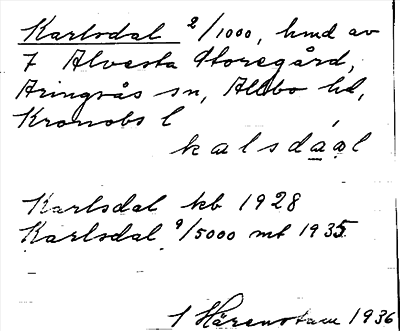 Karlsdal 2/1000, hmd av
7 Alvesta Storegård,
Aringsås sn, Allbo hd,
Kronobs l
kalsdáal
Karlsdal kb 1928
Karlsdal 9/5000 mt 1935
1936